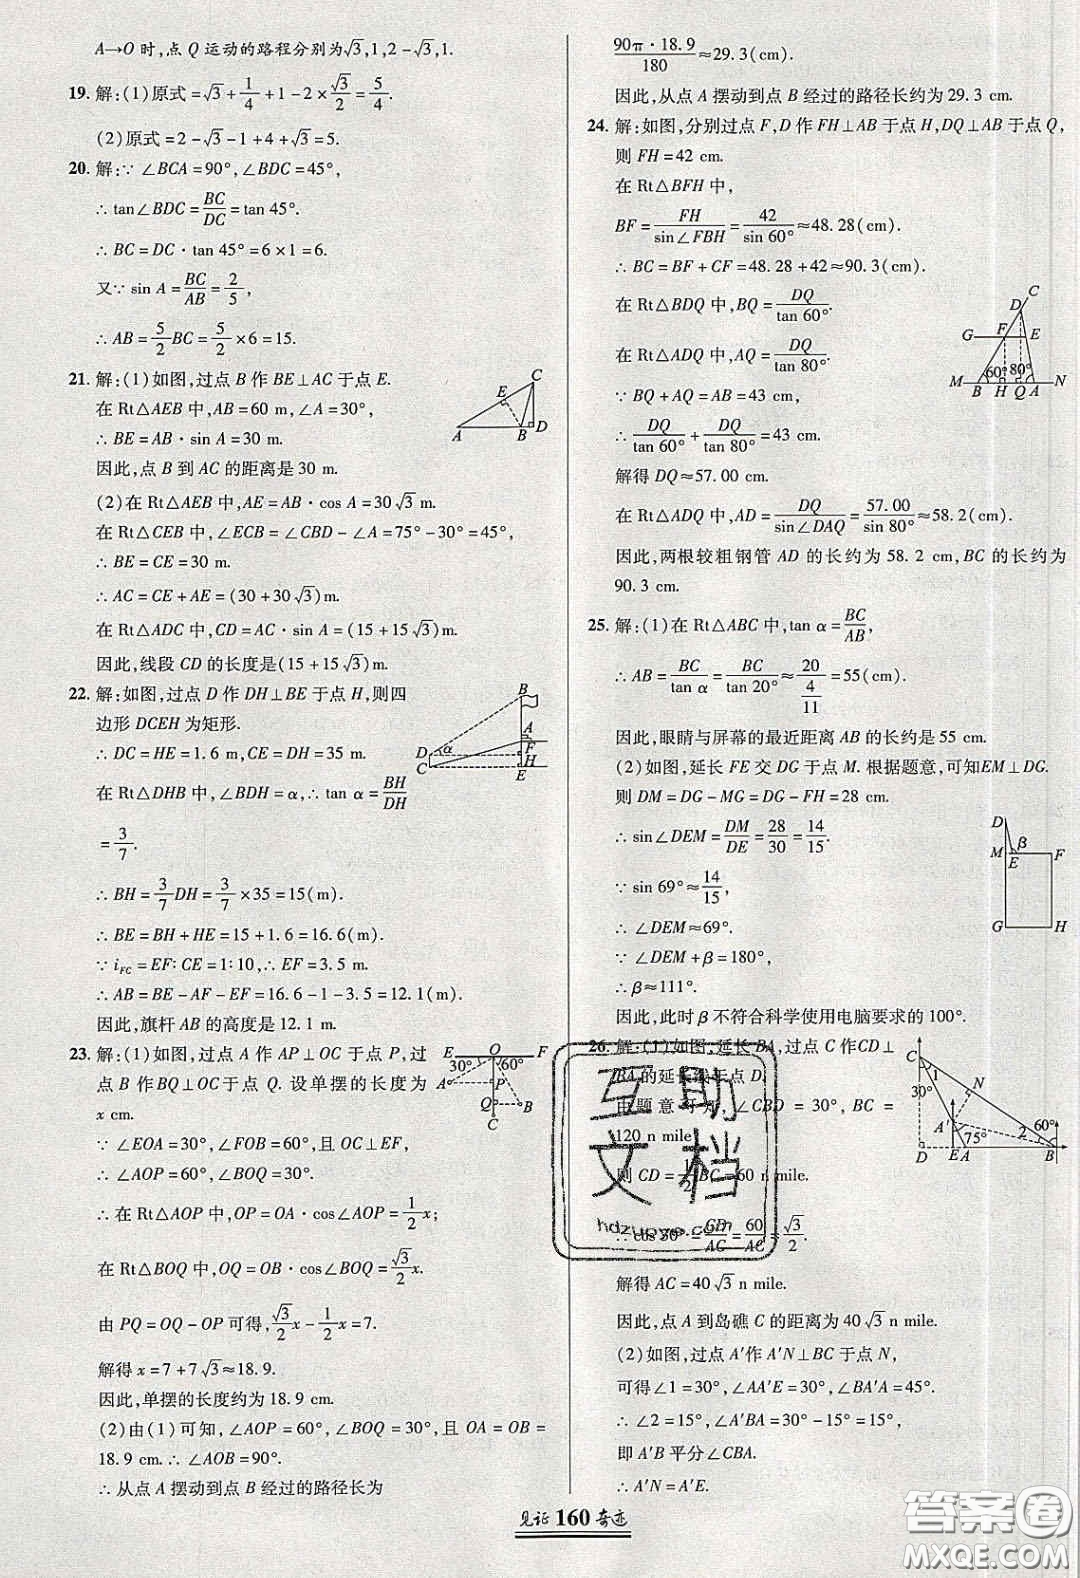 A→O 时,点 Q 运动的路程分别为√3,1,2-√3,1.
19. 解:(1)原式=√3+1/4+1-2×√3/2=5/4.
(2)原式=2-√3-1+4+√3=5.
20. 解:∵∠BCA=90°,∠BDC=45°,
∴tan∠BDC=BC/DC=tan 45°.
∴BC=DC·tan 45°=6×1=6.
又∵sin A=BC/AB=2/5,
∴AB=5/2BC=5/2×6=15.
21. 解:(1)如图,过点 B 作 BE⊥AC 于点 E.
在 Rt△AEB 中,AB=60 m,∠A=30°,
∴BE=AB·sin A=30 m.
因此,点 B 到 AC 的距离是 30 m.
(2)在 Rt△AEB 中,AE=AB·cos A=30√3 m.
在 Rt△CEB 中,∠ECB=∠CBD-∠A=75°-30°=45°,
∴BE=CE=30 m.
∴AC=CE+AE=(30+30√3)m.
在 Rt△ADC 中,CD=AC·sin A=(15+15√3)m.
因此,线段 CD 的长度是(15+15√3)m.
22. 解:如图,过点 D 作 DH⊥BE 于点 H,则四
边形 DCEH 为矩形.
∴DC=HE=1.6 m,CE=DH=35 m.
在 Rt△DHB 中,∠BDH=α,∴tan α=BH/DH
=3/7.
∴BH=3/7DH=3/7×35=15(m).
∴BE=BH+HE=15+1.6=16.6(m).
∵i_FC=EF:CE=1:10,∴EF=3.5 m.
∴AB=BE-AF-EF=16.6-1-3.5=12.1(m).
因此,旗杆 AB 的高度是 12.1 m.
23. 解:(1)如图,过点 A 作 AP⊥OC 于点 P,过
点 B 作BQ⊥OC于点 Q. 设单摆的长度为
x cm.
∵∠EOA=30°,∠FOB=60°,且 OC⊥EF,
∴∠AOP=60°,∠BOQ=30°.
∴在 Rt△AOP 中,OP=OA·cos∠AOP=1/2x;
在 Rt△BOQ 中,OQ=OB·cos∠BOQ=√3/2x.
由 PQ=OQ-OP 可得,√3/2x-1/2x=7.
解得 x=7+7√3≈18.9.
因此,单摆的长度约为 18.9 cm.
(2)由(1)可知,∠AOP=60°,∠BOQ=30°,且 OA=OB=
18.9 cm.∴∠AOB=90°.
∴从点 A 摆动到点 B 经过的路径长为
90π·18.9/180≈29.3(cm).
因此,从点 A 摆动到点 B 经过的路径长约为 29.3 cm.
24. 解:如图,分别过点 F,D 作 FH⊥AB 于点 H,DQ⊥AB 于点 Q,
则 FH=42 cm.
在 Rt△BFH 中,
BF=FH/sin∠FBH=42/sin 60°≈48.28(cm).
∴BC=BF+CF=48.28+42≈90.3(cm).
在 Rt△BDQ 中,BQ=DQ/tan 60°.
在 Rt△ADQ 中,AQ=DQ/tan 80°.
∵BQ+AQ=AB=43 cm,
∴DQ/tan 60°+DQ/tan 80°=43 cm.
解得 DQ≈57.00 cm.
在 Rt△ADQ 中,AD=DQ/sin∠DAQ=57.00/sin 80°≈58.2(cm).
因此,两根较粗钢管 AD 的长约为 58.2 cm,BC 的长约为
90.3 cm.
25. 解:(1)在 Rt△ABC 中,tan α=BC/AB,
∴AB=BC/tan α=BC/tan 20°≈20/(4/11)=55(cm).
因此,眼睛与屏幕的最近距离 AB 的长约是 55 cm.
(2)如图,延长 FE 交 DG 于点 M. 根据题意,可知EM⊥DG.
则 DM=DG-MG=DG-FH=28 cm.
∴sin∠DEM=DM/DE=28/30=14/15.
∵sin 69°≈14/15,
∴∠DEM≈69°.
∵∠DEM+β=180°,
∴β≈111°.
因此,此时 β 不符合科学使用电脑要求的 100°.
26. 解:(1)如图,延长 BA,过点 C 作CD⊥
BA的延长线于点 D.
由题意可知,∠CBD=30°,BC=
120 n mile.
则 CD=1/2BC=60 n mile.
∴cos 30°=CD/AC=60/AC=√3/2.
解得 AC=40√3 n mile.
因此,点 A 到岛礁 C 的距离为 40√3 n mile.
(2)如图,过点 A′作 A′N⊥BC 于点 N,
可得∠1=30°,∠AA′E=45°,∠BA′A=45°.
∴∠2=15°,∠A′BA=30°-15°=15°,
即 A′B 平分∠CBA.
∴A′N=A′E.
见证160奇迹
互助
文档
hdzuoye.com
答案圈
MXQE.COM